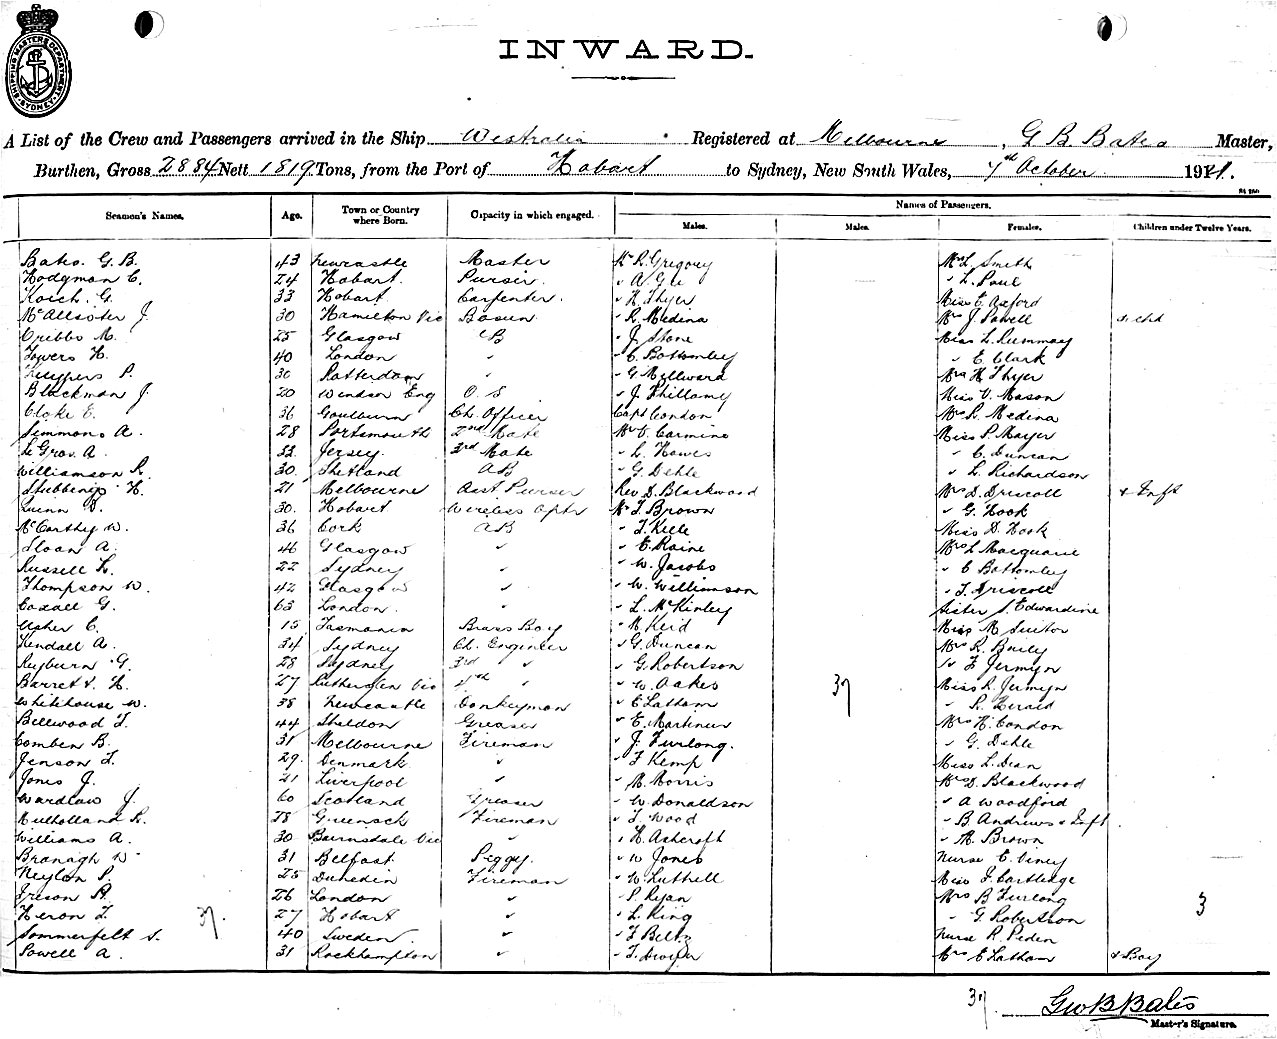 SHIPPING MASTERS DEPARTMENT SYDNEY
INWARD.
A List of the Crew and Passengers arrived in the Ship Westralia Registered at Melbourne, G B Bates Master,
Burthen, Gross 2884 Nett 1819 Tons, from the Port of Hobart to Sydney, New South Wales, 7th October 1921.
Names of Passengers.
Seamen's Names. Age. Town or Country where Born. Capacity in which engaged. Males. Males. Females. Children under Twelve Years.
Bates. G. B. 43 Newcastle Master Mr R. Gregory Mrs L. Smith
Hodgman C. 24 Hobart. Purser. " A Gee " L. Paul
Koich. G. 33 Hobart Carpenter. " H. Thyer Miss E. Axford
McAllister J. 30 Hamilton Vic Bosun. " R. Medina Mrs J. Powell & chd
Cribbs M. 25 Glasgow AB " J. Stone Miss L. Rummay
Towers H. 40 London " " C. Bottomley " E. Clark
Kuypers P. 30 Rotterdam " " G Millward Mrs H Thyer
Blackman J. 20 Windsor Eng O.S. " J. Phillamy Miss V. Mason
Cloke E. 36 Goulburn Ch. Officer Capt Condon Mrs R. Medina
Simmons A. 28 Portsmouth 2nd Mate Mr C. Carmino Miss P. Mayer
Le Gros. A. 32 Jersey. 3rd Mate " L. Howes " C. Duncan
Williamson R. 30. Shetland AB " G. Dehle " L. Richardson
Stubbings H. 21 Melbourne Asst Purser Rev D. Blackwood Mrs D. Driscoll & Inft
Quinn D. 30. Hobart Wireless Optr Mr T. Brown " G. Hook
McCarthy W. 36 Cork AB " T. Kelle Miss D. Hook
Sloan A. 46 Glasgow " " E. Raine Mrs L Macquarie
Russell H. 22 Sydney " " W. Jacobs " C Bottomley
Thompson W. 42 Glasgow " " W. Williamson " T. Driscoll
Coxall G. 63 London. " " L. McKinley Sister S. Edwardine
Usher C. 15 Tasmania Brass Boy " M. Reid Miss M Suitor
Kendall A. 34 Sydney Ch. Engineer " G. Duncan Mrs R. Baily
Reyburn G. 28 Sydney 3rd " " G. Robertson " F Jermyn
Barrett. H. 27 Rutherglen Vic 4th " " W. Oakes 37 Miss R. Jermyn
Whitehouse W. 38 Newcastle Donkeyman " C Latham " R. Gerald
Bellwood T. 44 Sheldon Greaser " E. Martineu Mrs H. Condon
Comben B. 31 Melbourne Fireman " J. Furlong. " G. Dehle
Jenson T. 29. Denmark " " F Kemp Miss L. Dean
Jones J. 21 Liverpool " " M. Morris Mrs D. Blackwood
Wardlaw J. 60 Scotland Greaser " W. Donaldson " A Woodford
Mulholland R. 28 Greenock Fireman " T. Wood " B Andrews & Inft
Williams A. 30 Bairnsdale Vic " " H. Ashcroft " M. Brown
Branagh W 31 Belfast Peggy. " W Jones Nurse E. Viney
Neylon P. 25 Dunedin Fireman " W. Luttrell Miss J. Cartledge
Ireson A. 26 London " " P. Ryan Mrs B Furlong
Heron T. 37. 27 Hobart " " L. King " G Robertson 3
Sommerfelt S. 40 Sweden. " " F Beltz Nurse R. Peden
Powell A. 31 Rockhampton " " T. Dwyer Mrs E Latham & Boy
37. Geo B Bates
Master's Signature.